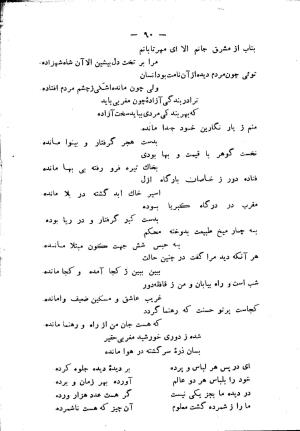 — ۹۰ —
بتاب از مشرق جانم الا ای مهر تابانم
مرا بر تخت دل بنشین الا آن شاه شهزاده
توئی چون مردم دیده از آن نامت بود انسان
ولی چون مانده اشکی زچشم مردم افتاده
نزاد ربندگی آزادهٔ چون مغربی باید
که بهر بندگی مردی بباید سخت آزاده
منم ز یار نگارین خود جدا مانده
بدست هجر گرفتار و بینوا مانده
نخست گوهر با قیمت و بها بودی
بخاك تیره فرو رفته بی بها مانده
فتاده دور ز خاصان بارگاه ازل
اسیر خاك ابد گشته در بلا مانده
مقرب در درگاه کبریا بوده
بدست کبر گرفتار و در ریا بوده
بچار میخ طبیعت بدوخته محکم
به حبس شش جهت کون مبتلا مانده
هر آنکه دید مرا گفت در چنین حالت
ببین ببین ز کجا آمده و کجا مانده
شب است و راه بیابان و من ز قافله دور
غریب عاشق و مسکین ضعیف و امانده
کجاست پرتو حسنت که رهنما گردد
که هست جان من از راه و رهنما مانده
شده ز دوری خورشید مغربی حقیر
بسان ذرهٔ سرگشته در هوا مانده
ای در پس هر لباس و پرده
بر دیدهٔ دیده جلوه کرده
خود را بلباس هر دو عالم
آورده بهر زمان و برده
در دیده ما بجز یکی نیست
ما را بعدد که هست کرده
ما را ز شمرده گشت معلوم
آن چیز که هست ناشمرده